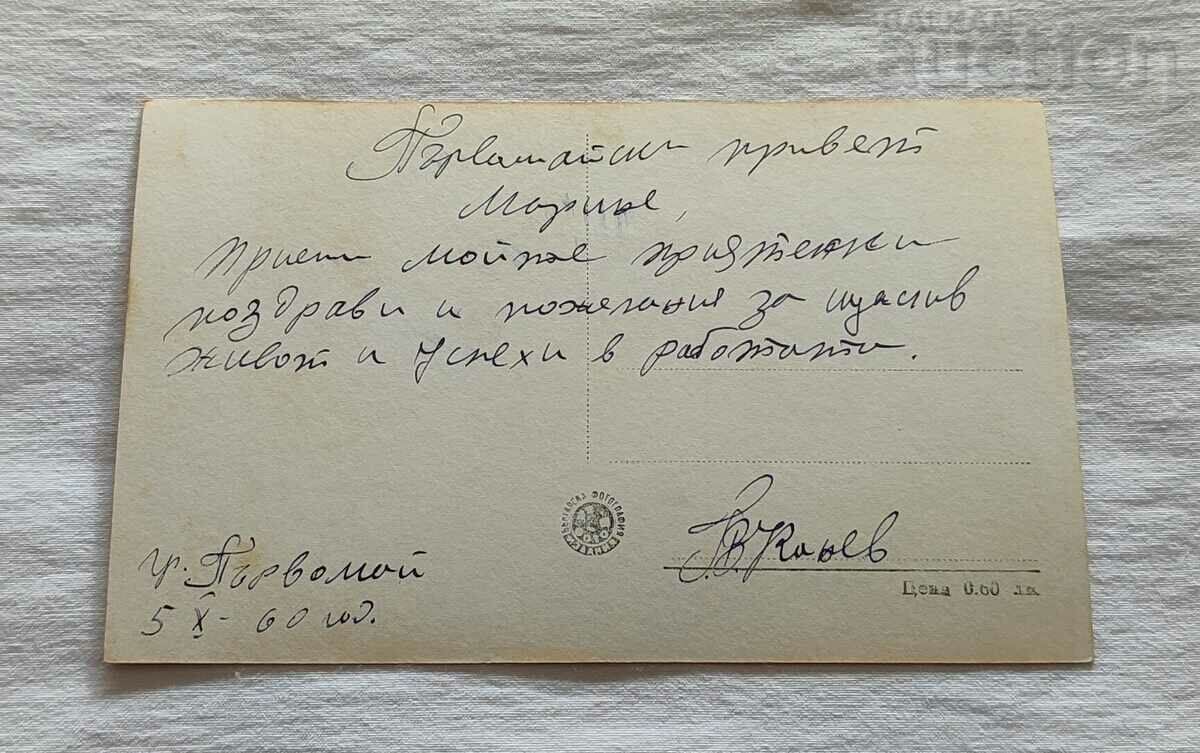 BALKAN
auction
Първомайски привет
Марине,
Приеми мойте приятелски
поздрави и пожелания за щаслив
живот и успехи в работата.
БЪЛГАРСКА ФОТОГРАФИЯ
гр. Първомай
5 X - 60 год.
Цена 0.60 лв.